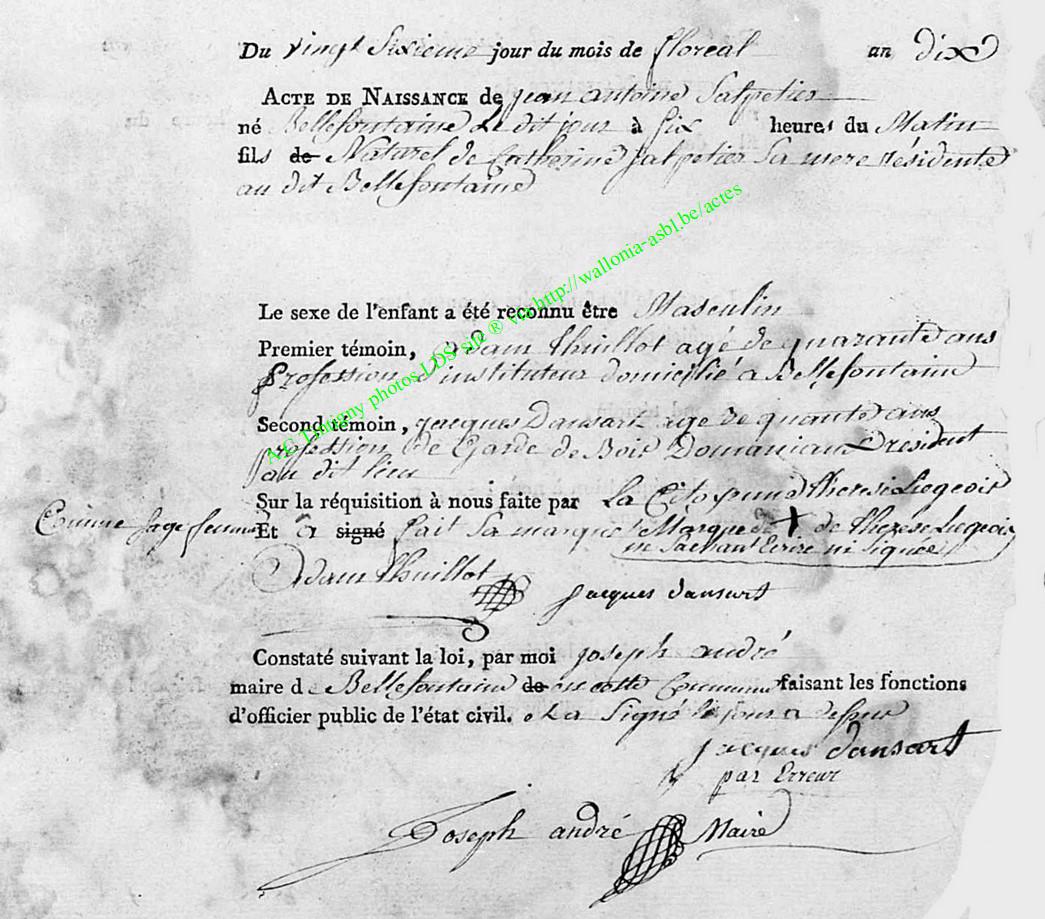 Du vingt Sixieme jour du mois de floreal an dix
ACTE DE NAISSANCE de jean antoine Salpetier
né Bellefontaine Le dit jour à Six heures du Matin
fils de Naturel de Catherine Salpetier Sa mere résidente
au dit Bellefontaine
Le sexe de l'enfant a été reconnu être Masculin
Premier témoin, Adam thuillot agé de quarante ans
Profession d'instituteur domicilié a Bellefontaine
Second témoin, jacques Dansart age de quante ans
profession de Garde de Bois Domaniaux resident
au dit lieu
Sur la réquisition à nous faite par La Citoyenne therese Liegeois
Comme Sage femme Et a signé fait Sa marque Marque de + de therese Liegeois
ne Sachant Ecrire ni Signée
Adam thuillot
jacques dansart
Constaté suivant la loi, par moi joseph andré
maire de Bellefontaine de cette Commune faisant les fonctions
d'officier public de l'état civil. Signé le jour
jacques dansart
par Erreur
Joseph andré Maire
AC Tintigny photos LDS site ® via http://wallonia-asbl.be/actes